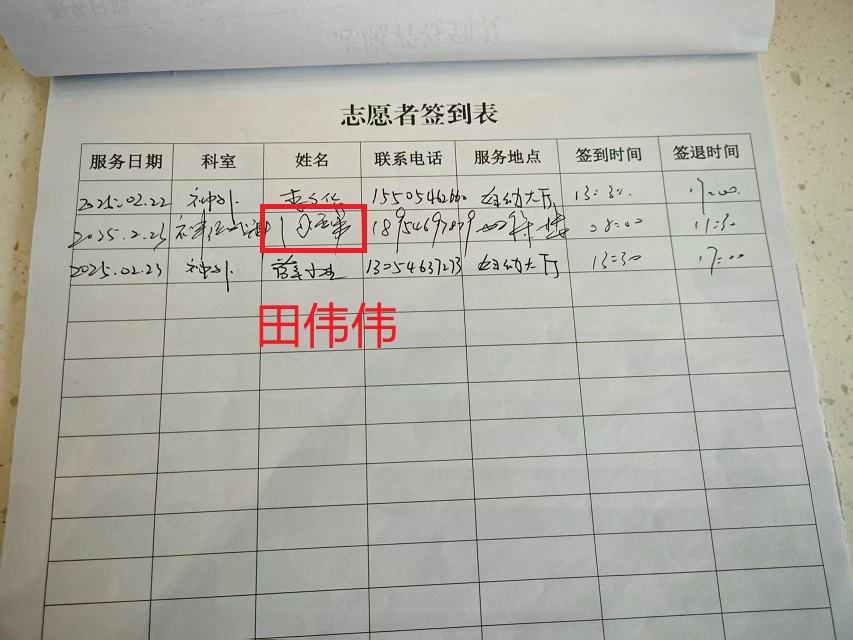 志愿者签到表
服务日期 科室 姓名 联系电话 服务地点 签到时间 签退时间
2025.02.22 神外 李文华 15505462660 自助大厅 13:30 17:00
2025.2.23 18954697879 08:00 11:30
2025.02.23 神外 13054637273 自助大厅 13:30 17:00
田伟伟